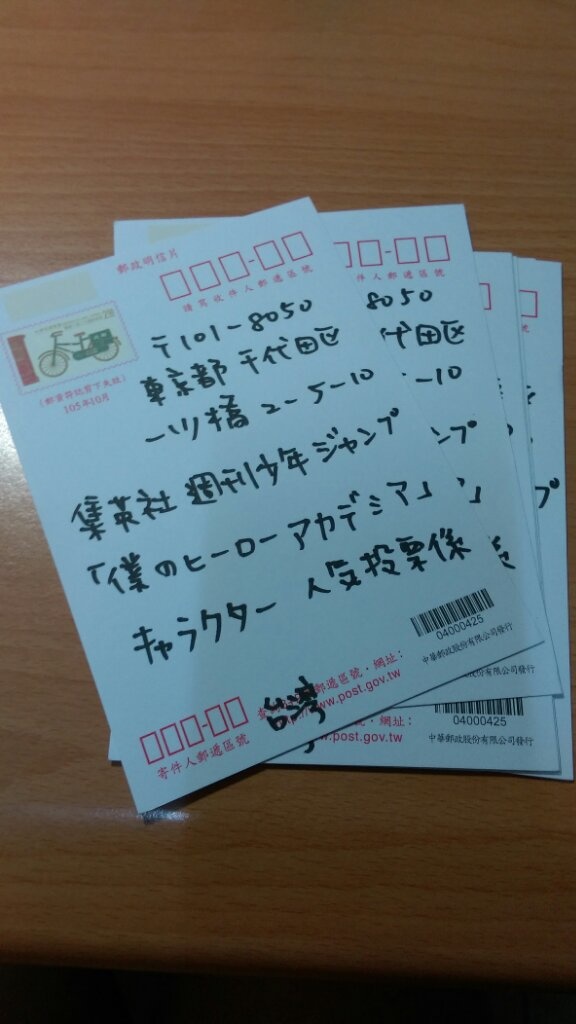 郵政明信片
請寫收件人郵遞區號
(郵資符誌剪下失效)
105年10月
〒101-8050
東京都 千代田区
一ツ橋 2-5-10
集英社 週刊少年ジャンプ
「僕のヒーローアカデミア」
キャラクター 人気投票係
04000425
中華郵政股份有限公司發行
郵遞區號，網址：
www.post.gov.tw
台灣
寄件人郵遞區號
件人郵遞區號
8050
代田区
-10
ンプ
」
係
股份有限公司發行
號
プ
04000425
網址：
www.post.gov.tw
中華郵政股份有限公司發行